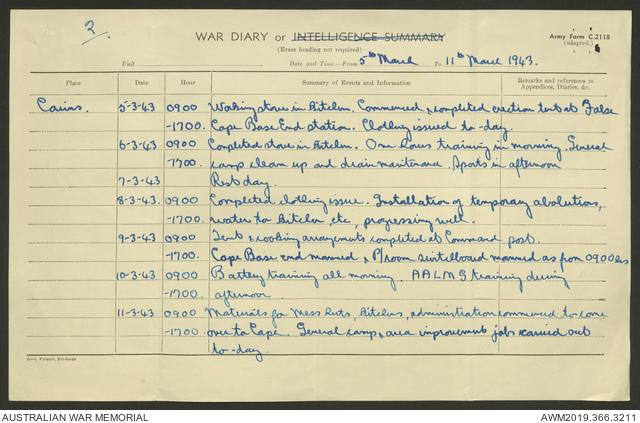 2.
WAR DIARY or INTELLIGENCE SUMMARY
(Erase heading not required)
Army Form C.2118
(adapted.)
Unit Date and Time—From 5th March To 11th March 1943.
Place Date Hour Summary of Events and Information Remarks and references in Appendices, Diaries, &c.
Cairns. 5-3-43 0900 Working store in kitchen. Commenced & completed erection tent at False
-1700. Cape Base End station. Clothing issued to-day.
6-3-43 0900 Completed store in kitchen. One hours training in morning. General
1700. camp clean up and drain maintenance. Sports in afternoon
7-3-43 Rest day.
8-3-43. 0900 Completed clothing issue. Installation of temporary ablutions,
-1700. water to kitchen, etc, progressing well.
9-3-43 0900 Tent & cooking arrangements completed at Command post.
-1700. Cape Base end manned & P/room switchboard manned as from 0900 hrs
10-3-43 0900 Battery training all morning. AALMG training during
-1700. afternoon.
11-3-43 0900 Materials for Mess huts, kitchens, administration commenced to come
-1700 over to Cape. General camp & area improvement jobs carried out
to-day.
AUSTRALIAN WAR MEMORIAL
AWM2019.366.3211